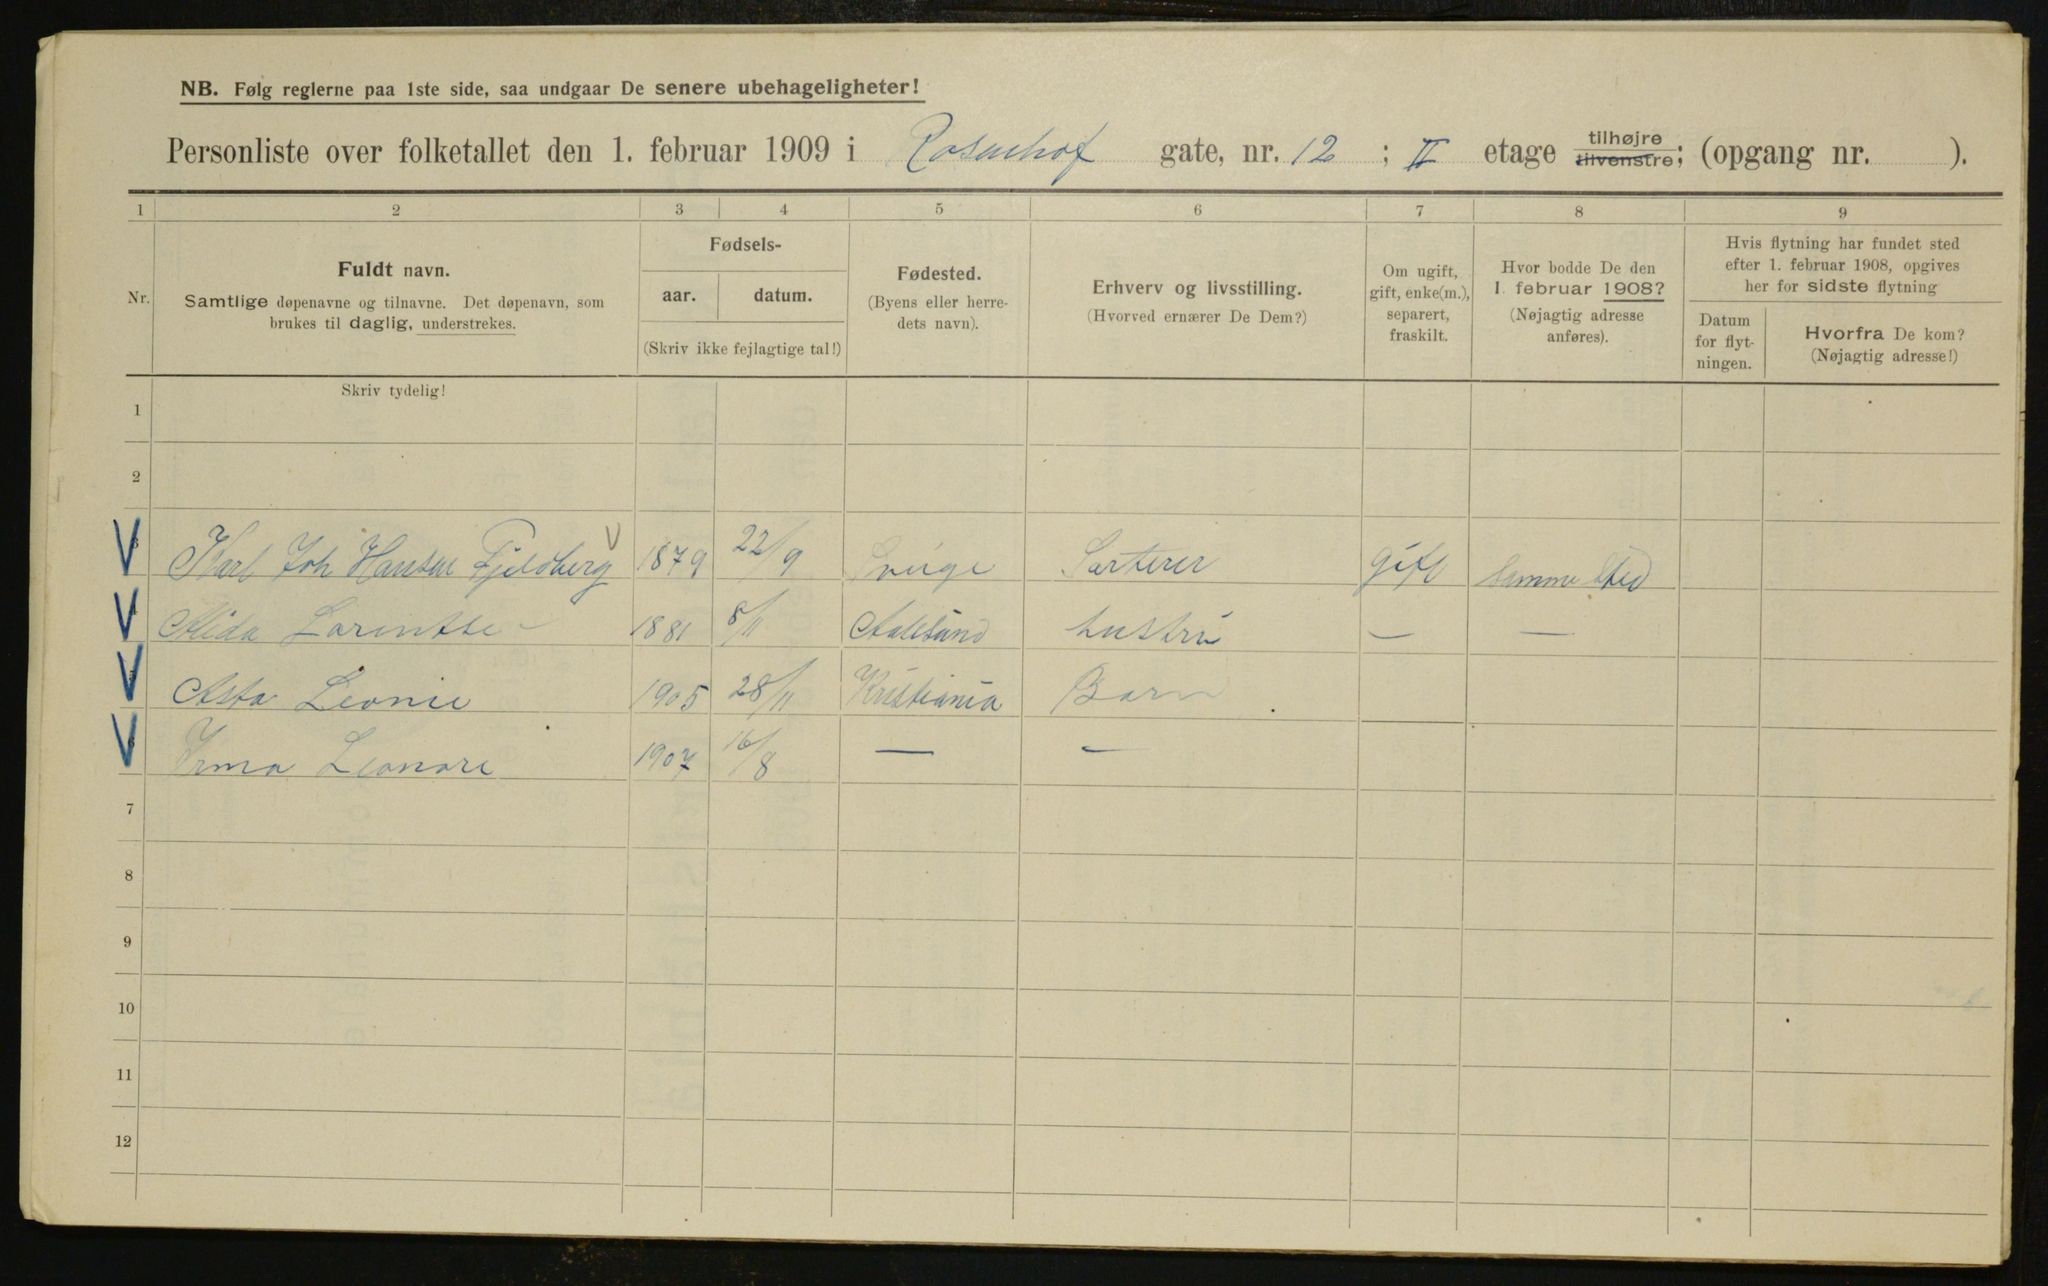 NB. Følg reglerne paa 1ste side, saa undgaar De senere ubehageligheter!
Personliste over folketallet den 1. februar 1909 i Rosenhof gate, nr. 12 ; II etage tilhøjre tilvenstre; (opgang nr. ).
1 2 3 4 5 6 7 8 9
Nr.
Fuldt navn.
Samtlige døpenavne og tilnavne. Det døpenavn, som
brukes til daglig, understrekes.
Fødsels-
aar. datum.
(Skriv ikke fejlagtige tal!)
Fødested.
(Byens eller herre-
dets navn).
Erhverv og livsstilling.
(Hvorved ernærer De Dem?)
Om ugift,
gift, enke(m.),
separert,
fraskilt.
Hvor bodde De den
1. februar 1908?
(Nøjagtig adresse
anføres).
Hvis flytning har fundet sted
efter 1. februar 1908, opgives
her for sidste flytning
Datum
for flyt-
ningen.
Hvorfra De kom?
(Nøjagtig adresse!)
Skriv tydelig!
1
2
V 3 Karl Joh Hansen Fjeldberg V 1879 22/9 Sverige Sorterer gift Samme Sted
V 4 Alida 1881 8/11 Aalesund hustru — —
V 5 Asta Leonie 1905 28/11 Kristiania Barn
V 6 Irma Leonore 1907 16/8 — —
7
8
9
10
11
12